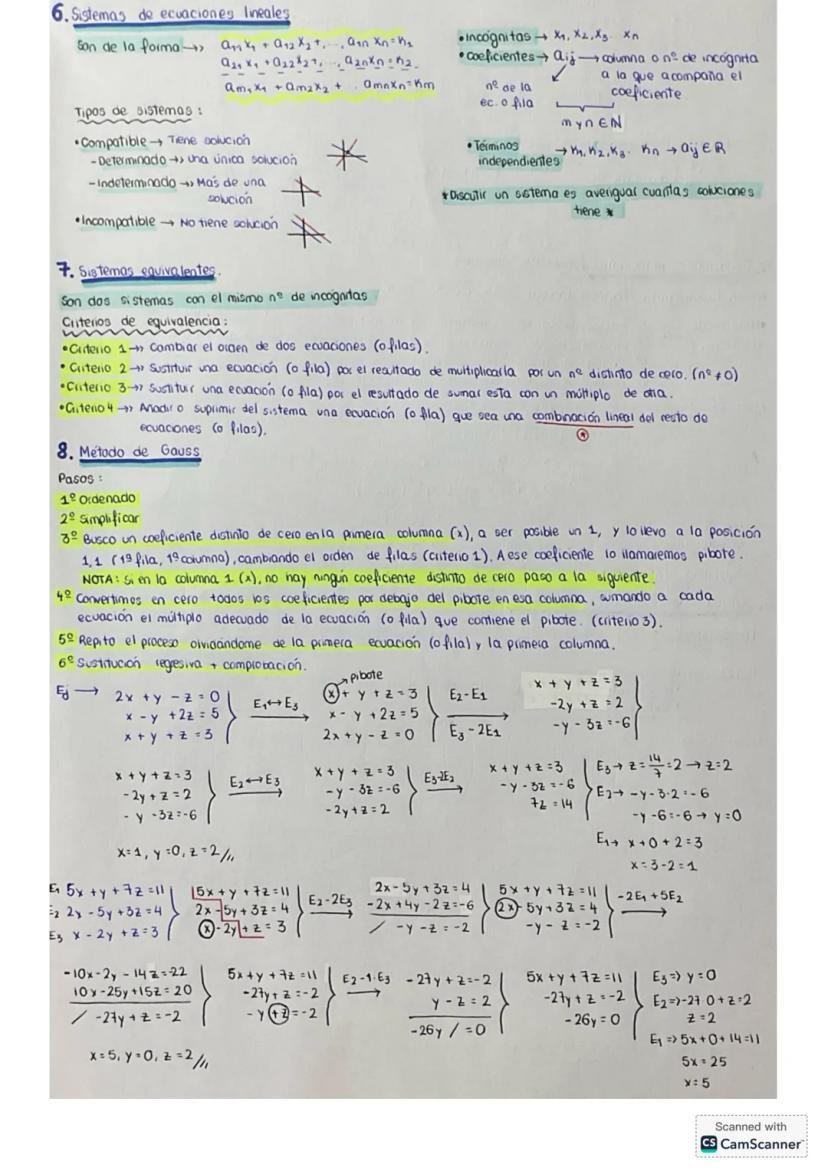 6. Sistemas de ecuaciones lineales
Son de la forma →» a₁₁ x₁ + a₁₂ x₂ +, ..., a₁n xn = k₁
a₂₁ x₁ + a₂₂ x₂ +, ..., a₂n xn = k₂
am₁ x₁ + am₂ x₂ + . amn xn = km
• incógnitas → x₁, x₂, x₃ .. xn
• coeficientes → aij → columna o nº de incógnita
a la que acompaña el
coeficiente
nº de la
ec. o fila
m y n ∈ N
• Términos
independientes → k₁, k₂, k₃ . kn → aij ∈ R
* Discutir un sistema es averiguar cuantas soluciones
tiene *
Tipos de sistemas :
• Compatible → Tiene solución
- Determinado →» una única solución
- Indeterminado →» Mas de una
solución
• Incompatible → No tiene solución
7. Sistemas equivalentes.
Son dos sistemas con el mismo nº de incognitas
Criterios de equivalencia :
• Criterio 1 →» Cambiar el orden de dos ecuaciones (o filas).
• Criterio 2 →» Sustituir una ecuación (o fila) por el resultado de multiplicarla por un nº distinto de cero. (nº ≠ 0)
• Criterio 3 →» Sustituir una ecuación (o fila) por el resultado de sumar esta con un múltiplo de otra.
• Criterio 4 →» Anadir o suprimir del sistema una ecuación (o fila) que sea una combinación lineal del resto de
ecuaciones (o filas).
8. Método de Gauss
Pasos :
1º Ordenado
2º Simplificar
3º Busco un coeficiente distinto de cero en la primera columna (x), a ser posible un 1, y lo llevo a la posición
1,1 (1ª fila, 1ª columna), cambiando el orden de filas (criterio 1). A ese coeficiente lo llamaremos pibote.
NOTA: Si en la columna 1 (x), no hay ningún coeficiente distinto de cero paso a la siguiente.
4º Convertimos en cero todos los coeficientes por debajo del pibote en esa columna, sumando a cada
ecuación el múltiplo adecuado de la ecuación (o fila) que contiene el pibote. (criterio 3).
5º Repito el proceso olvidándome de la primera ecuación (o fila) y la primera columna.
6º Sustitución regresiva + comprobación.
Ej → 2x + y - z = 0
x - y + 2z = 5
x + y + z = 3
E₁ ↔ E₃
pibote
x + y + z = 3
x - y + 2z = 5
2x + y - z = 0
E₂ - E₁
E₃ - 2E₁
x + y + z = 3
-2y + z = 2
-y - 3z = -6
x + y + z = 3
-2y + z = 2
- y - 3z = -6
E₂ ↔ E₃
x + y + z = 3
-y - 3z = -6
-2y + z = 2
E₃ - 2E₂
x + y + z = 3
-y - 3z = -6
7z = 14
E₃ → z = 14/7 = 2 → z = 2
E₂ → -y - 3·2 = -6
-y - 6 = -6 → y = 0
E₁ → x + 0 + 2 = 3
x = 3 - 2 = 1
x = 1, y = 0, z = 2 //
E₁ 5x + y + 7z = 11
E₂ 2x - 5y + 3z = 4
E₃ x - 2y + z = 3
5x + y + 7z = 11
2x - 5y + 3z = 4
x - 2y + z = 3
E₂ - 2E₃
2x - 5y + 3z = 4
-2x + 4y - 2z = -6
/ -y - z = -2
5x + y + 7z = 11
2x - 5y + 3z = 4
-y - z = -2
-2E₁ + 5E₂
-10x - 2y - 14z = -22
10x - 25y + 15z = 20
/ -27y + z = -2
5x + y + 7z = 11
-27y + z = -2
- y + z = -2
E₂ - 1·E₃
-27y + z = -2
y - z = 2
-26y / = 0
5x + y + 7z = 11
-27y + z = -2
-26y = 0
E₃ => y = 0
E₂ => -27·0 + z = 2
z = 2
E₁ => 5x + 0 + 14 = 11
5x = 25
x = 5
x = 5, y = 0, z = 2 //
Scanned with
CS CamScanner